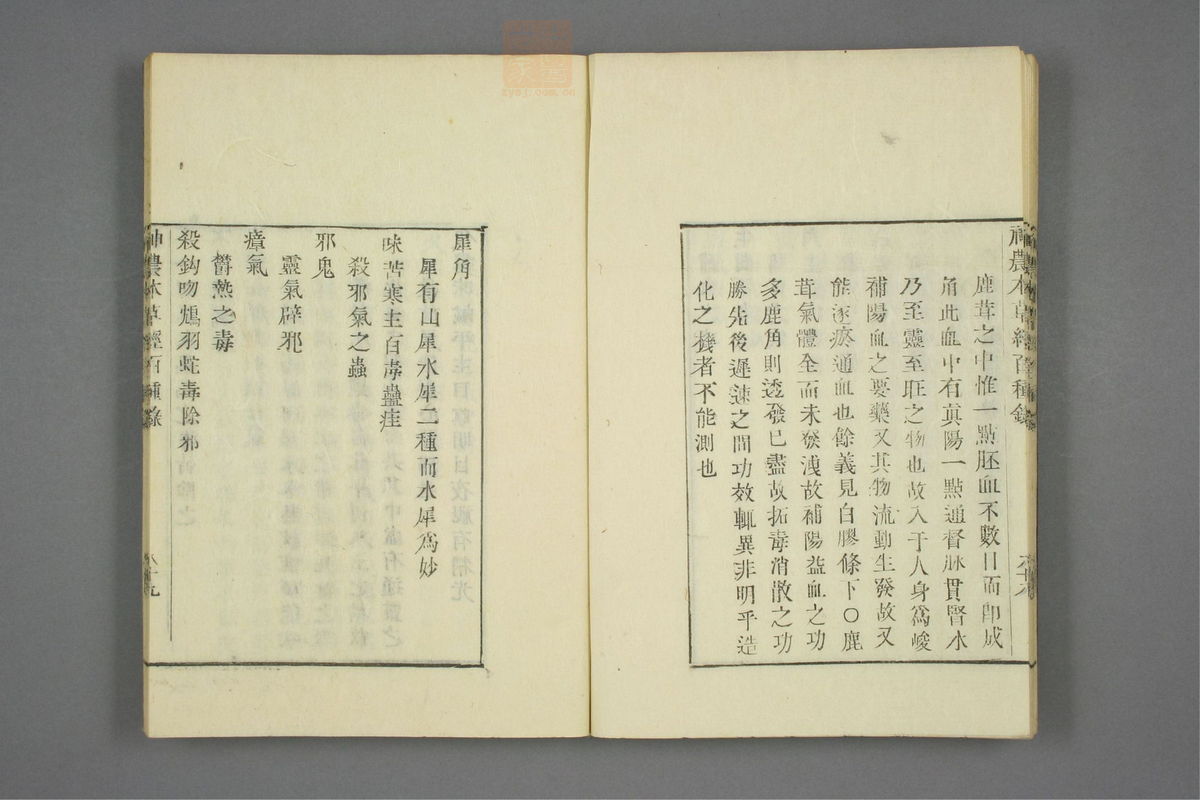 神農本草經百種錄
鹿茸之中惟一點胚血不數日而卽成
角此血中有眞陽一點通督脉貫腎水
乃至靈至旺之物也故入于人身爲峻
補陽血之要藥又其物流動生發故又
能逐瘀通血也餘義見白膠條下○鹿
茸氣體全而未發洩故補陽益血之功
多鹿角則透發已盡故拓毒消散之功
勝先後遲速之間功效輒異非明乎造
化之機者不能測也
犀角
犀有山犀水犀二種而水犀爲妙
味苦寒主百毒蠱疰
殺邪氣之蟲
邪鬼
靈氣辟邪
瘴氣
欝熱之毒
殺鈎吻鴆羽蛇毒除邪
神農本草經百種錄
八十九
zysj.com.cn